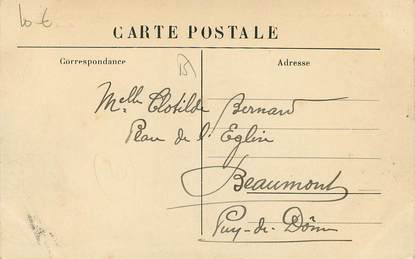 10 €
CARTE POSTALE
Correspondance
Adresse
Melle Clotilde Bernard
Place de l'Eglise
Beaumont
Puy-de-Dôme